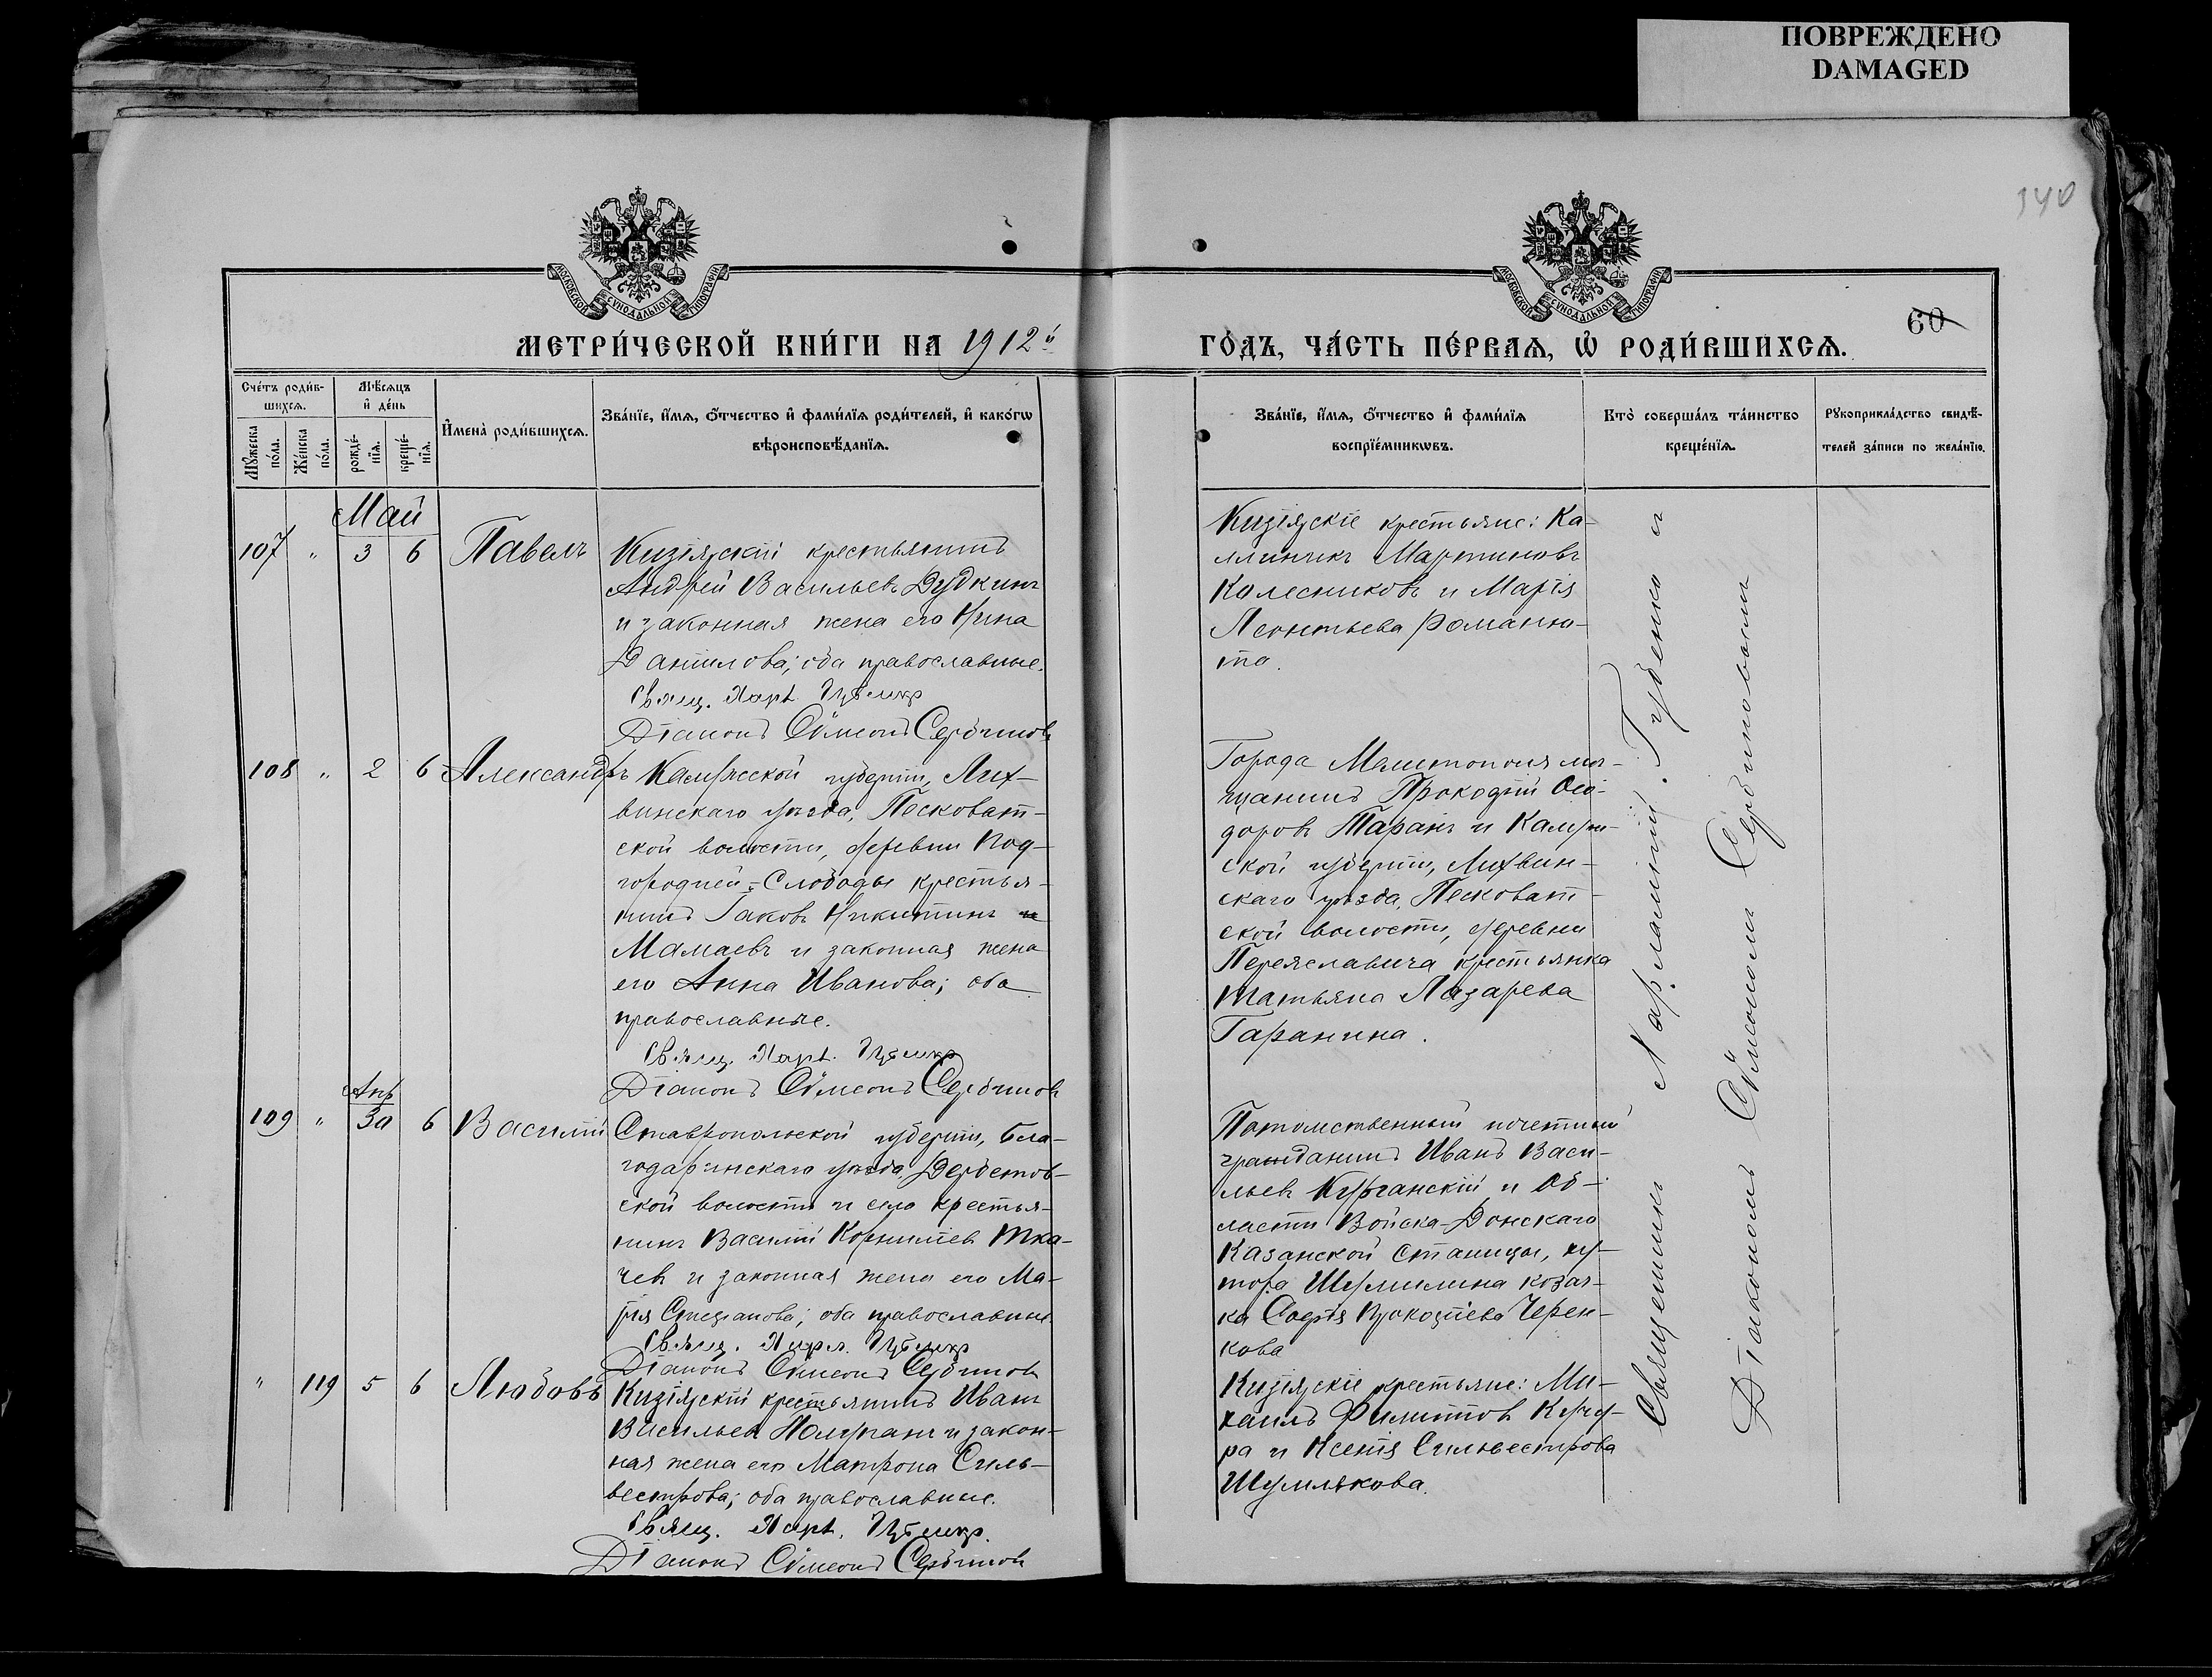 ПОВРЕЖДЕНО
DAMAGED
340
60
МОСКОВСКОЙ СѴНОДАЛЬНОЙ ТИПОГРАФІИ
МОСКОВСКОЙ СѴНОДАЛЬНОЙ ТИПОГРАФІИ
МЕТРИ́ЧЕСКОЙ КНИ́ГИ НА 1912й
ГО́ДЪ, ЧА́СТЬ ПЕ́РВАѦ, Ѽ РОДИ́ВШИХСѦ.
Сче́тъ роди́в-
шихсѧ.
Мꙋ́жеска
по́ла.
Же́нска
по́ла.
Мѣ́сѧцъ
и҆ де́нь
рожде́-
нїѧ.
креще́-
нїѧ.
И҆мена̀ роди́вшихсѧ.
Зва́нїе, и҆́мѧ, ѻ҆́тчество и҆ фами́лїѧ роди́телей, и҆ како́гѡ
вѣроисповѣ́данїѧ.
Зва́нїе, и҆́мѧ, ѻ҆́тчество и҆ фами́лїѧ
воспрїе́мникѡвъ.
Кто̀ соверша́лъ та́инство
креще́нїѧ.
Рꙋкоприкла́дство свидѣ́-
телей за́писи по жела́нїю.
Май
107 " 3 6 Павелъ
Кизіярскій крестьянинъ
Андрей Васильевъ Дудкинъ
и законная жена его Нина
Данилова; оба православные.
Свящ. Харл. Губенко
Діаконъ Сѵмеонъ Сербиновъ
Кизіярскіе крестьяне: Ка-
линикъ Мартиновъ
Колесниковъ и Марія
Леонтьева Романю-
та.
108 " 2 6 Александръ
Калужской губерніи, Лих-
винскаго уѣзда, Песковат-
ской волости, деревни Под-
городней-Слободы крестья-
нинъ Іаковъ Никитинъ
Мамаевъ и законная жена
его Анна Иванова; оба
православные.
Свящ. Харл. Губенко
Діаконъ Сѵмеонъ Сербиновъ
Города Мелитополя мѣ-
щанинъ Прокофій Ѳео-
доровъ Таранъ и Калуж-
ской губерніи, Лихвин-
скаго уѣзда, Песковат-
ской волости, деревни
Переславича крестьянка
Татьяна Лазарева
Гаранина.
Апр
109 " 30 6 Василій
Ставропольской губерніи, Бла-
годаринскаго уѣзда, Дербетов-
ской волости и села крестья-
нинъ Василій Корниліевъ Тка-
чевъ и законная жена его Ма-
рія Стефанова; оба православные.
Свящ. Харл. Губенко
Діаконъ Сѵмеонъ Сербиновъ
Потомственный почетный
гражданинъ Иванъ Васи-
льевъ Курганскій и Об-
ласти Войска-Донскаго
Казанской станицы, ху-
тора Шумилина козач-
ка Софія Прокофіева Черен-
кова
" 119 5 6 Любовь
Кизіярскій крестьянинъ Иванъ
Васильевъ и закон-
ная жена его Матрона Силь-
вестрова; оба православные.
Свящ. Харл. Губенко.
Діаконъ Сѵмеонъ Сербиновъ
Кизіярскіе крестьяне: Ми-
хаилъ Филипповъ Кучу-
ра и Ксенія Сильвестрова
Шумлякова.
Священникъ Харлампій Губенко и
Діакономъ Сѵмеономъ Сербиновымъ